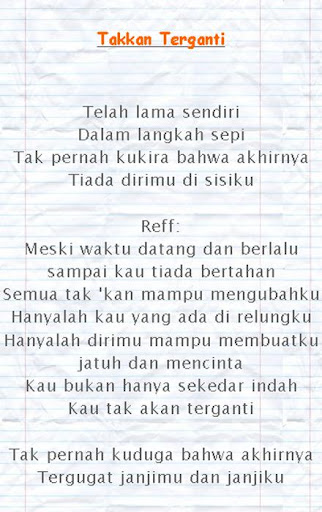 Takkan Terganti
Telah lama sendiri
Dalam langkah sepi
Tak pernah kukira bahwa akhirnya
Tiada dirimu di sisiku
Reff:
Meski waktu datang dan berlalu
sampai kau tiada bertahan
Semua tak 'kan mampu mengubahku
Hanyalah kau yang ada di relungku
Hanyalah dirimu mampu membuatku
jatuh dan mencinta
Kau bukan hanya sekedar indah
Kau tak akan terganti
Tak pernah kuduga bahwa akhirnya
Tergugat janjimu dan janjiku